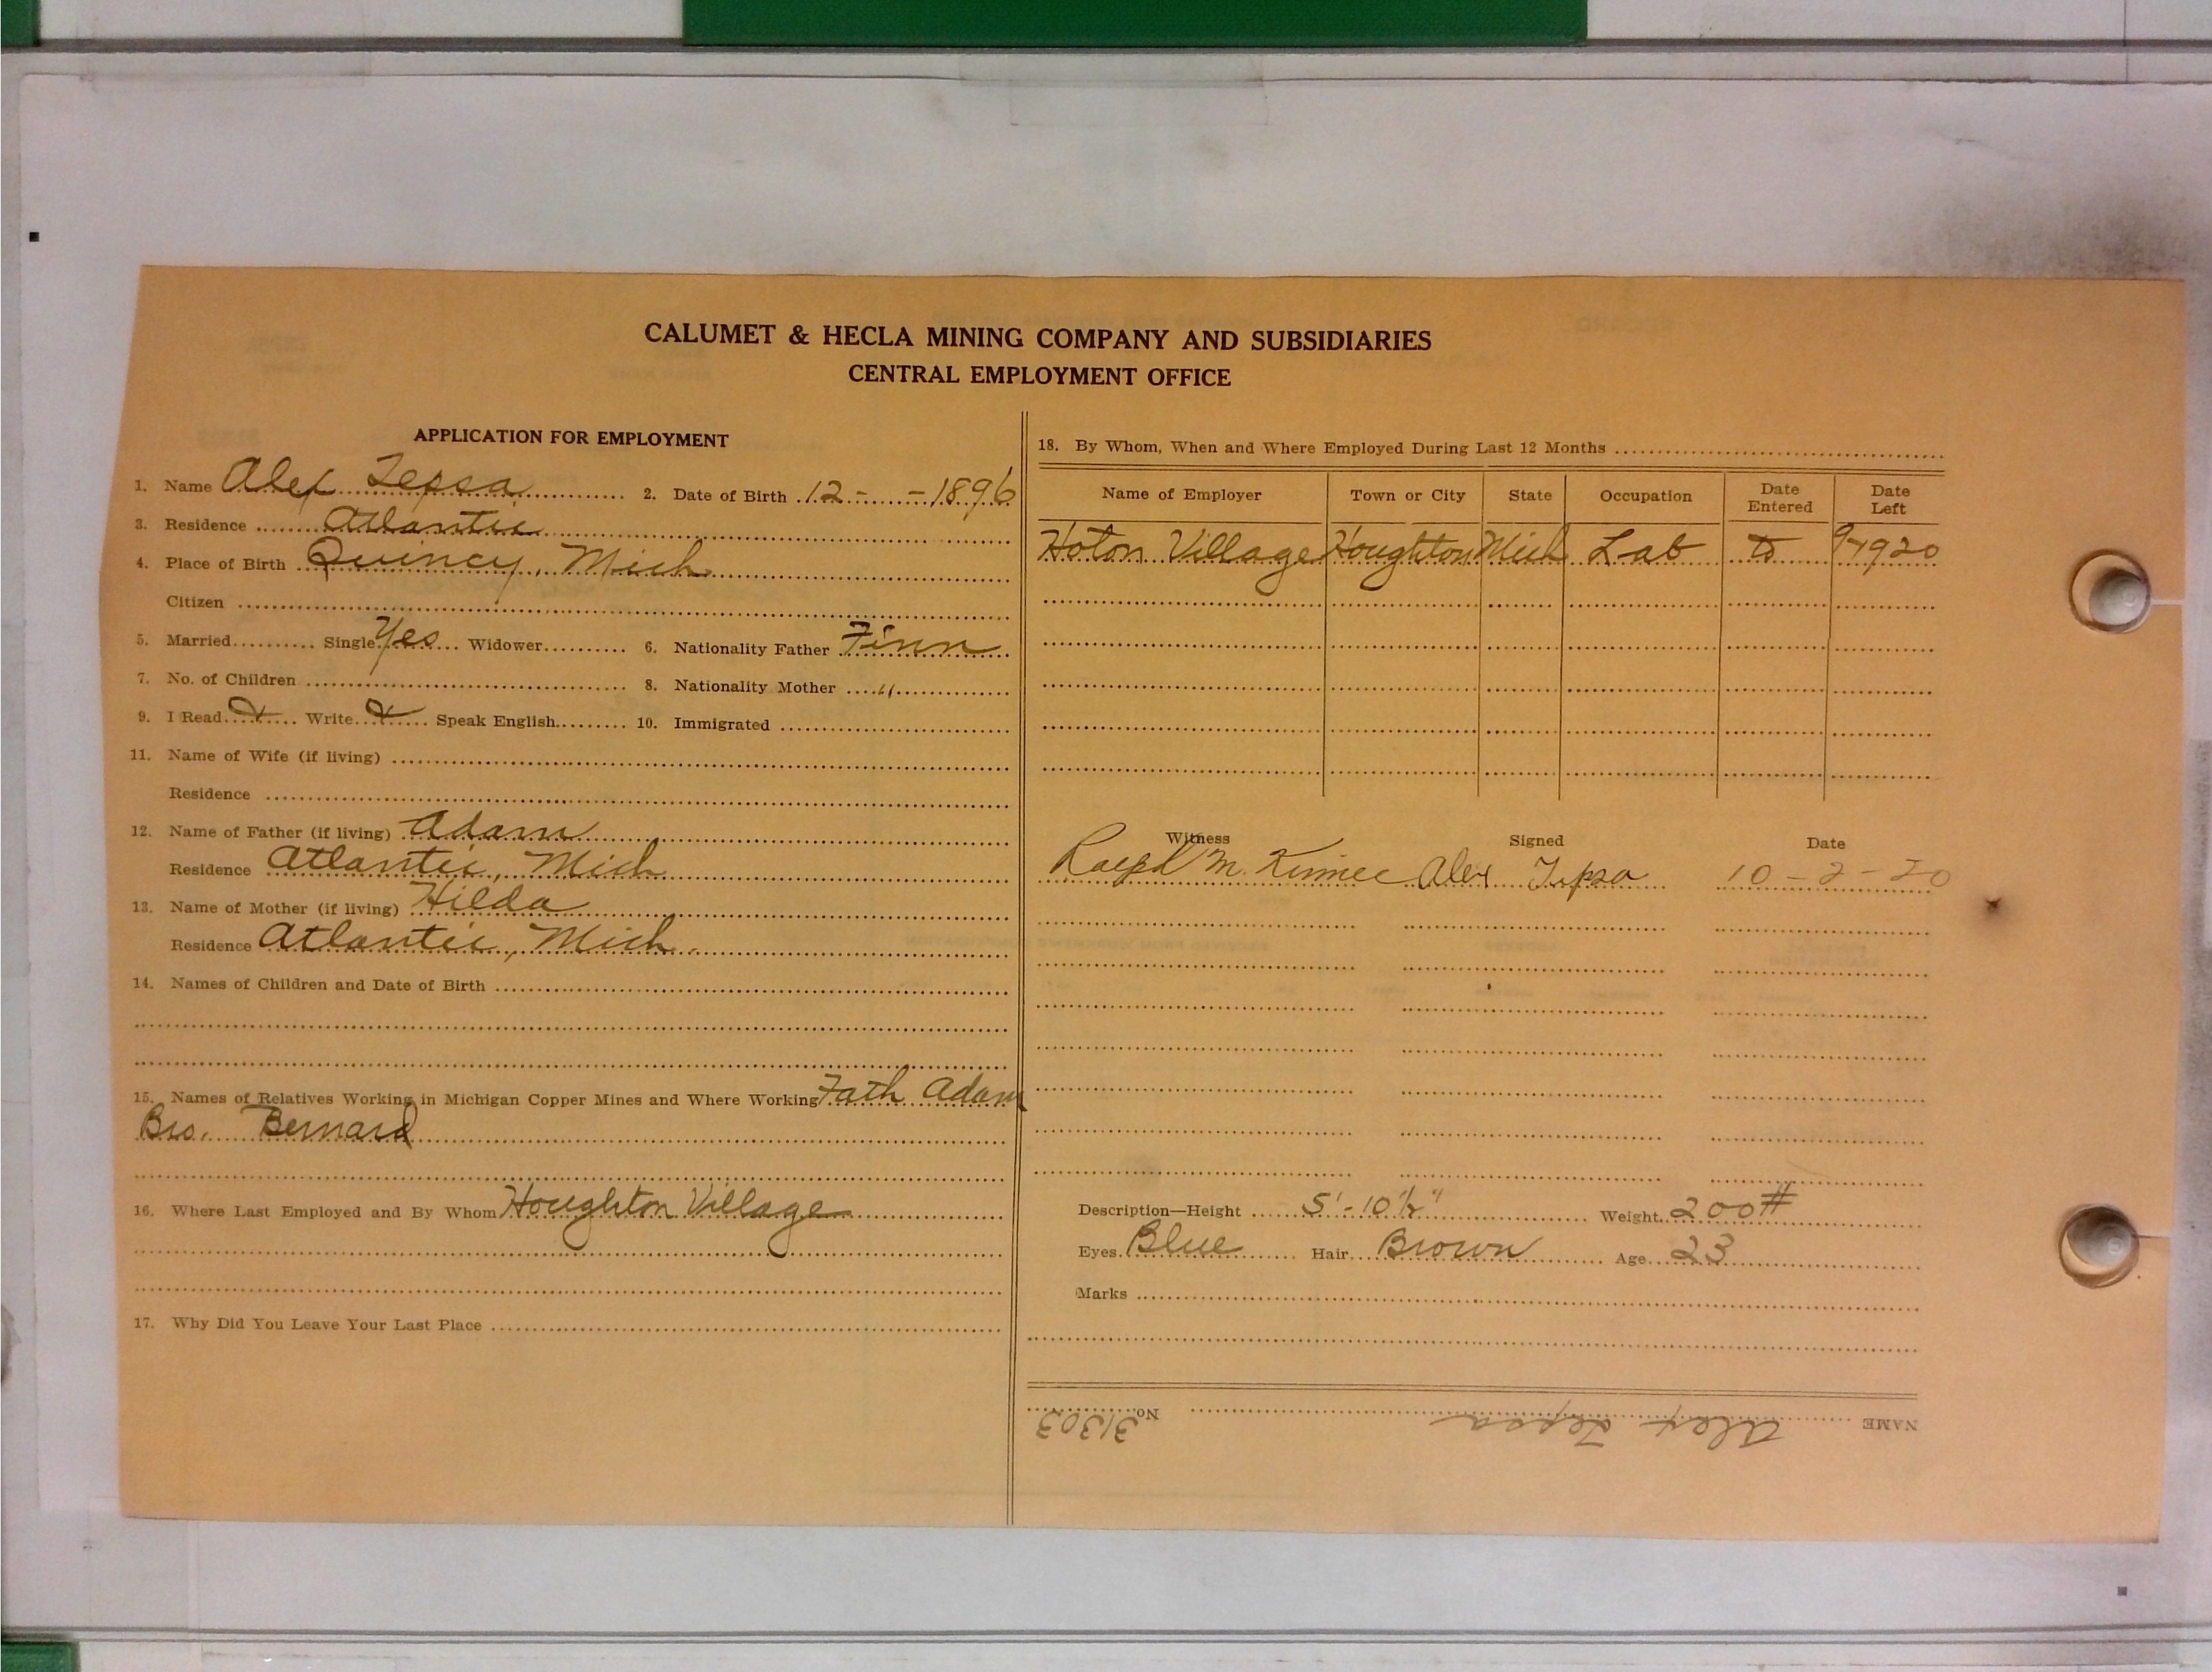 CALUMET & HECLA MINING COMPANY AND SUBSIDIARIES
CENTRAL EMPLOYMENT OFFICE
APPLICATION FOR EMPLOYMENT
1. Name Alex Tepsa 2. Date of Birth 12 - - 1896
3. Residence Atlantic
4. Place of Birth Quincy, Mich
Citizen
5. Married Single Yes Widower 6. Nationality Father Finn
7. No. of Children 8. Nationality Mother "
9. I Read Write Speak English 10. Immigrated
11. Name of Wife (if living)
Residence
12. Name of Father (if living) Adam
Residence Atlantic, Mich
13. Name of Mother (if living) Hilda
Residence Atlantic, Mich.
14. Names of Children and Date of Birth
15. Names of Relatives Working in Michigan Copper Mines and Where Working Fath Adam
Bro. Bernard
16. Where Last Employed and By Whom Houghton Village
17. Why Did You Leave Your Last Place
18. By Whom, When and Where Employed During Last 12 Months
Name of Employer Town or City State Occupation Date Entered Date Left
Hoton Village Houghton Mich Lab to
Witness Signed Date
Ralph M. Alex Tepsa 10-2-20
Description—Height 5'-10½" Weight 200#
Eyes Blue Hair Brown Age 23
Marks
NAME Alex Tepsa No. 31303